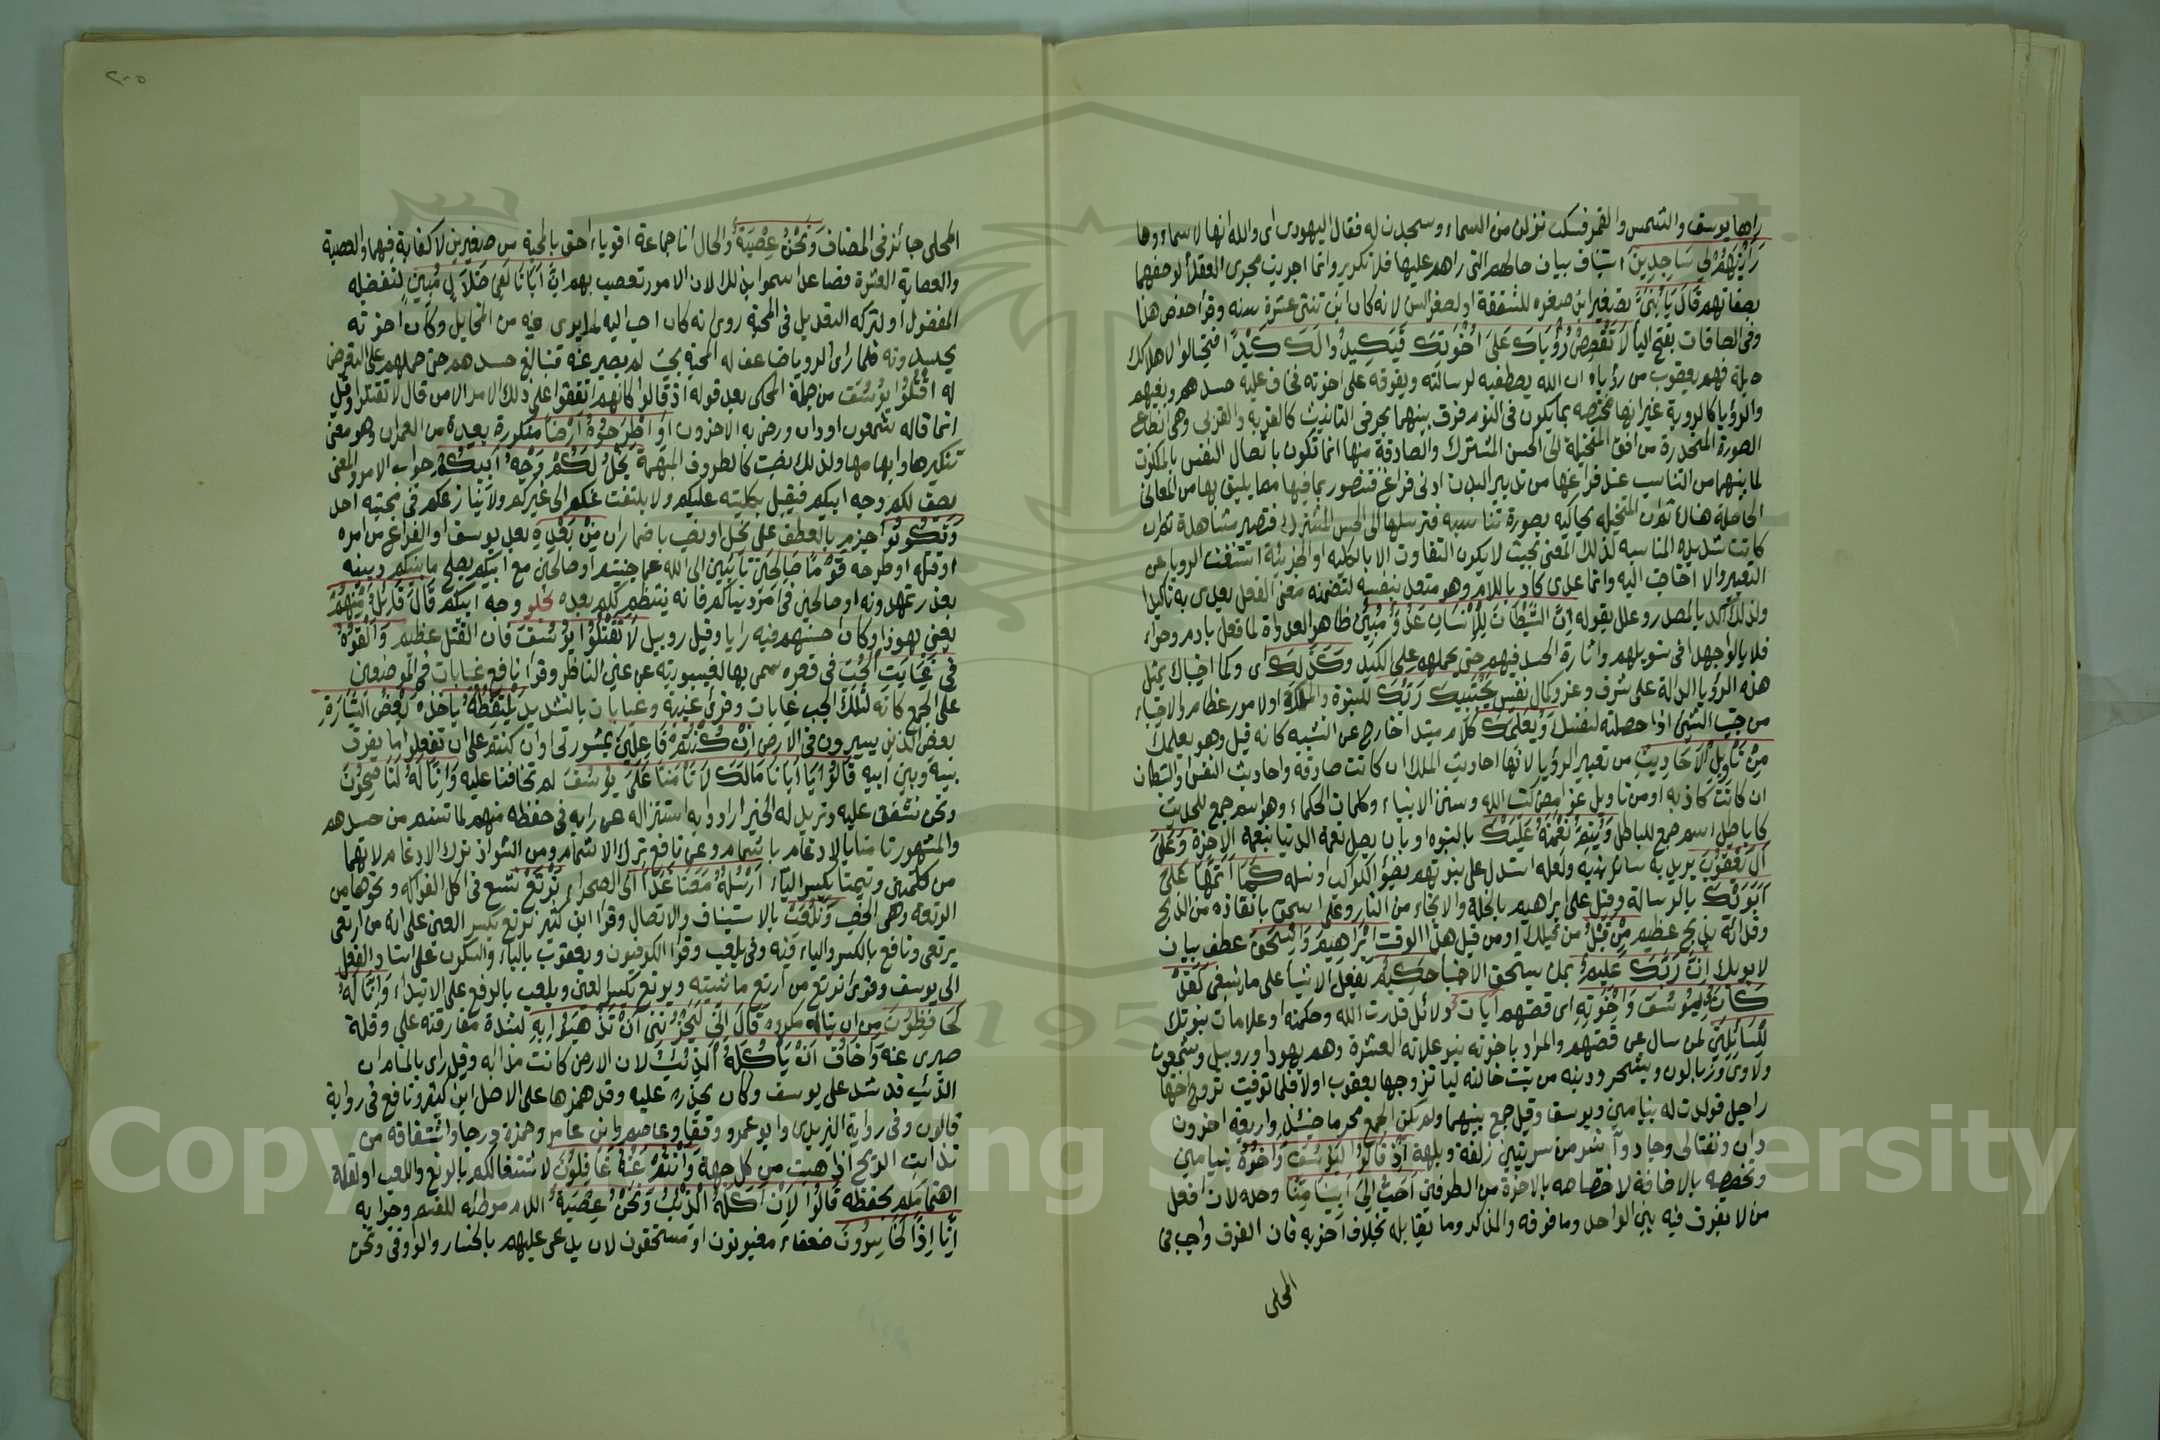 راها يوسف والشمس والقمر فسكت نزلن من السماء وسجدن له فقال اليهودى اى والله انها لاسماءوها
رَأَيْتُهُمْ لِي سَاجِدِينَ استيناف ببيان حالهم التى راهم عليها فلا تكرير وانما اجريت مجرى العقلأ لوصفهما
بصفاتهم قَالَ يَا بُنَيَّ تصغير ابن صغره للشفقة او لصغر السن لانه كان ابن ثنتى عشرة سنه وقرا حفص هنا
وفى الصافات بفتح اليأ لَا تَقْصُصْ رُؤْيَاكَ عَلَى اخْوَتِكَ فَيَكِيدُوا لَكَ كَيْدًا فيحتالوا لاهلاكك
حيلة فهم يعقوب من رؤياه ان الله يصطفيه لرسالته ويفوقه على اخوته فخاف عليه حسدهم وبغيهم
والرؤيا كالروية غير انها مختصه بما يكون فى النوم فرق بينهما بحرفى التانيث كالقربه والقربى وهى انطباع
الصورة المنحدرة من افق المتخيلة الى الحس المشترك والصادقة منها انما تكون باتصال النفس بالملكوت
لما بينهما من التناسب عند فراغها من تدبير البدن ادنى فراغ فتتصور بما فيها مما يليق بها من المعانى
الحاصلة هناك ثم ان المتخيله تحاكيه بصورة تناسبه فترسلها الى الحس المشترك فتصير مشاهدة ثم ان
كانت شديدة المناسبه لذلك المعنى بحيث لا يكون التفاوت الا بالكليه او الجزئية استغنت الرويا عن
التعبير والا احتاجت اليه وانما عدى كاد باللام وهو متعد بنفسه لتضمنه معنى الفعل يعدى به تاكيدا
ولذلك اكد بالمصدر وعلل بقوله اِنَّ الشَّيْطَانَ لِلْاِنْسَانِ عَدُوٌّ مُبِينٌ ظاهر العداوة لما فعل بادم وحواء
فلا يالوا جهدا فى تسويلهم واثارة الحسد فيهم حتى يحملهم على الكيد وَكَذَلِكَ اى وكما اجتباك بمثل
هذه الرؤيا الدالة على شرف وعز وكمال نفس يَجْتَبِيكَ رَبُّكَ للنبوة والملك او لامور عظام والاجتباء
من جبيت الشئ اذا حصلته لنفسك وَيُعَلِّمُكَ كلام مبتدا خارج عن التشبيه كانه قيل وهو يعلمك
مِنْ تَأْوِيلِ الْأَحَادِيثِ من تعبير الرؤيا لانها احاديث الملك ان كانت صادقة واحاديث النفس والشيطان
ان كانت كاذبه او من تاويل غوامض كتب الله وسنن الانبياء وكلمات الحكماء وهو اسم جمع للحديث
كاباطيل اسم جمع للباطل وَيُتِمُّ نِعْمَتَهُ عَلَيْكَ بالنبوه او بان يصل نعمة الدنيا بنعمه الاخرة وَعَلَى
آلِ يَعْقُوبَ يريد به سائر بنيه ولعله استدل على نبوتهم بضؤ الكواكب او نسله كَمَا أَتَمَّهَا عَلَى
أَبَوَيْكَ بالرسالة وقيل على ابراهيم بالخلة والانجاء من النار وعلى اسحق بانقاذه من الذبح
وفدائه بذبح عظيم مِنْ قَبْلُ من قبلك او من قبل هذا الوقت اِبْرَاهِيمَ وَإِسْحَقَ عطف بيان
لابويك اِنَّ رَبَّكَ عَلِيمٌ بمن يستحق الاجتبا حَكِيمٌ يفعل الاشيا على ما ينبغى لَقَدْ
كَانَ فِي يُوسُفَ وَاِخْوَتِهِ اى قصتهم ايَاتٌ دلائل قدرت الله وحكمته او علامات نبوتك
لِلسَّائِلِينَ لمن سال عن قصتهم والمراد باخوته بنو علاته العشرة وهم يهودا وروبيل وشمعون
ولاوى وزبالون ويشجر ودينه من بنت خالته ليا تزوجها يعقوب اولا فلما توفيت تزوج اختها
راحيل فولدت له بنيامين ويوسف وقيل جمع بينهما ولم يكن الجمع محرما حينئذ واربعة اخرون
دان ونفتالى وجاد وآشر من سريتين زلفة وبلهة اِذْ قَالُوا لَيُوسُفُ وَأَخُوهُ بنيامين
وتخصيصه بالاضافة لاختصاصه بالاخوة من الطرفين أَحَبُّ إِلَى أَبِينَا مِنَّا وحده لان افعل
من لا يفرق فيه بين الواحد وما فوقه والمذكر وما يقابله بخلاف اخويه فان الفرق واجب فى
المحلى
٢٠٥
المحلى جائز فى المضاف وَنَحْنُ عُصْبَةٌ والحال انا جماعة اقوياء احق بالمحبة من صغيرين لا كفاية فيهما والعصبة
والعصابة العشرة فصاعدا سموا بذلك لان الامور تعصب بهم اِنَّ أَبَانَا لَفِي ضَلَالٍ مُبِينٍ لتفضيله
المفضول او لتركه التعديل فى المحبة روى انه كان احب اليه لما يرى فيه من المخايل وكان اخوته
يحسدونه فلما راى الرويا ضاعف له المحبة بحيث لم يصبر عنه فتبالغ حسدهم حتى حملهم على التعرض
له اُقْتُلُوا يُوسُفَ من جملة المحكى بعد قوله اذ قالوا كانهم اتفقوا على ذلك الامر الا من قال لا تقتلوا وقيل
انما قاله شمعون او دان ورضى به الاخرون أَوِ اطْرَحُوهُ أَرْضًا منكورة بعيدة من العمران وهو معنى
تنكيرها وابهامها ولذلك نصبت كالظروف المبهمة يَخْلُ لَكُمْ وَجْهُ أَبِيكُمْ جواب الامر والمعنى
يصف لكم وجه ابيكم فيقبل بكليته عليكم ولا يلتفت عنكم الى غيركم ولا ينازعكم فى محبته احد
وَتَكُونُوا جزم بالعطف على يخل او نصب باضمار ان مِنْ بَعْدِهِ بعد يوسف او الفراغ من امره
او قتله او طرحه قَوْمًا صَالِحِينَ تايبين الى الله عما جنيتم او صالحين مع ابيكم يصلح ما بينكم وبينه
بعذر تمهدونه او صالحين فى امر دنياكم فانه ينتظم لكم بعده بخلو وجه ابيكم قَالَ قَائِلٌ مِنْهُمْ
يعنى يهوذا وكان احسنهم فيه رايا وقيل روبيل لَا تَقْتُلُوا يُوسُفَ فان القتل عظيم وَأَلْقُوهُ
فِي غَيَابَتِ الْجُبِّ فى قعره سمى بها لغيبوبته عن عين الناظر وقرا نافع غيابات فى الموضعين
على الجمع كانه لتلك الجب غيابات وقرئ غيبة وغيابات بالتشديد يَلْتَقِطْهُ ياخذه بَعْضُ السَّيَّارَةِ
بعض الذين يسيرون فى الارض اِنْ كُنْتُمْ فَاعِلِينَ بمشورتى او ان كنتم على ان تفعلوا ما يفرق
بينه وبين ابيه قَالُوا يَا أَبَانَا مَالَكَ لَا تَأْمَنَّا عَلَى يُوسُفَ لم تخافنا عليه وَاِنَّا لَهُ لَنَاصِحُونَ
ونحن نشفق عليه ونريد له الخير ارادوا به استنزاله عن رايه فى حفظه منهم لما تنسم من حسدهم
والمشهور تامنا بالادغام باشمام وعن نافع بترك الاشمام ومن الشواذ ترك الادغام لانهما
من كلمتين وتيمنا بكسر التاء أَرْسِلْهُ مَعَنَا غَدًا الى الصحراء نَرْتَعْ نتسع فى اكل الفواكه ونحوها من
الرتعة وهى الخصب وَنَلْعَبْ بالاستيناف والاتصال وقرا ابن كثير نرتع بكسر العين على انه من ارتعى
يرتعى ونافع بالكسر والياء فيه وفى يلعب وقرا الكوفيون ويعقوب بالياء والسكون على اسناد الفعل
الى يوسف وقرئ نرتع من ارتع ماشيته ويرتع بكسر العين ويلعب بالرفع على الابتداء وَإِنَّا لَهُ
لَحَافِظُونَ من ان يناله مكروه قَالَ اِنِّي لَيَحْزُنُنِي أَنْ تَذْهَبُوا بِهِ لشدة مفارقته على وقلة
صبرى عنه وَأَخَافُ أَنْ يَأْكُلَهُ الذِّئْبُ لان الارض كانت مذابه وقيل راى بالمنام ان
الذئب قد شد على يوسف وكان يحذره عليه وقد همزها على الاصل ابن كثير ونافع فى رواية
قالون وفى رواية اليزيدى وابو عمرو وقفا وعاصم وابن عامر وحمزة درجا واشتقاقه من
تذابت الريح اذا هبت من كل جهة وَأَنْتُمْ عَنْهُ غَافِلُونَ لاشتغالكم بالرتع واللعب او لقلة
اهتمامكم بحفظه قَالُوا لَئِنْ أَكَلَهُ الذِّئْبُ وَنَحْنُ عُصْبَةٌ اللام موطئه للقسم وجوابه
اِنَّا اِذًا لَخَاسِرُونَ ضعفاء مغبونون او مستحقون لان يدعى عليهم بالخسار والواو فى ونحن
Copyright © King Saud University
1957